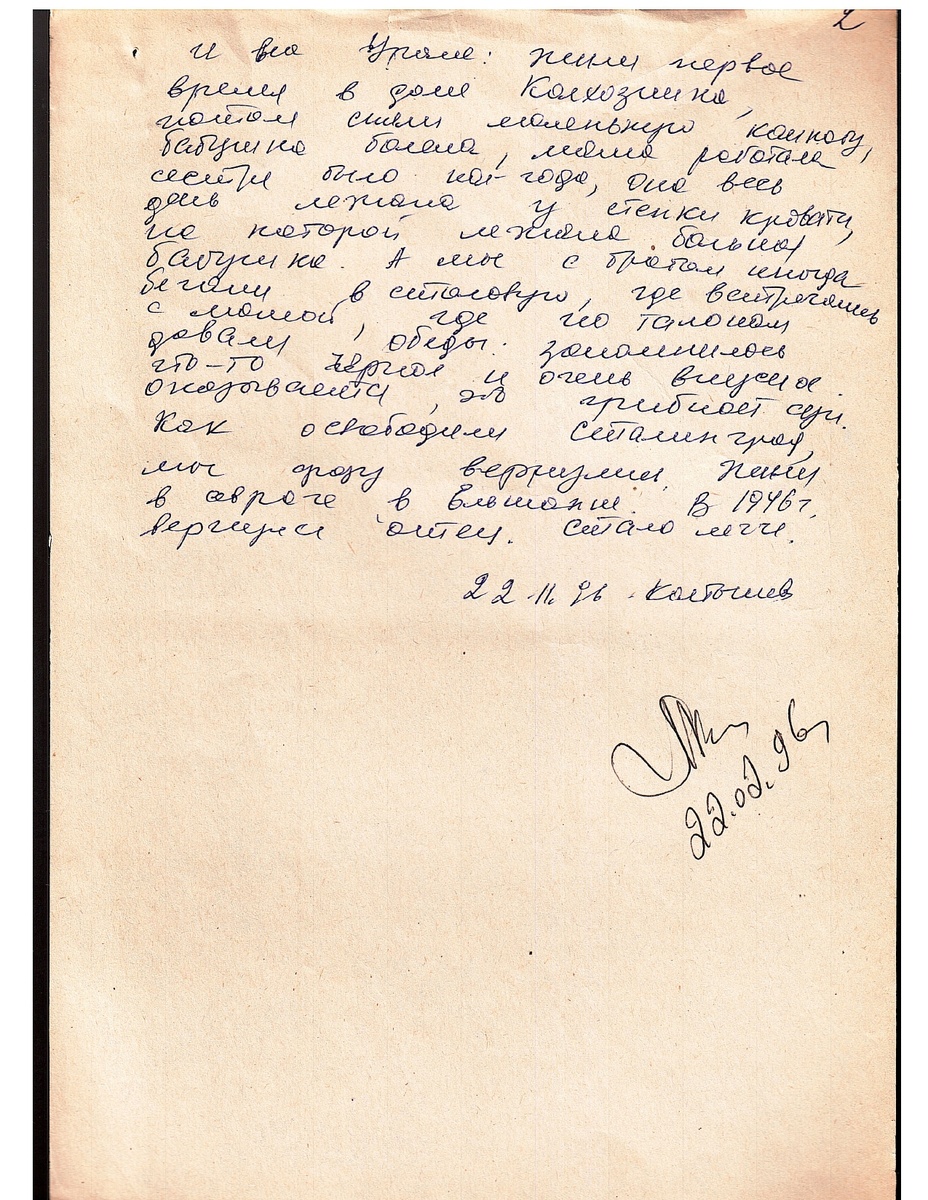 2
И вот Урале: жили первое
время в доме Колхозника,
потом сняли маленькую комнату,
бабушка болела, мама работала
сестре было пол-года, она весь
день лежала у стенки кровати,
на которой лежала больная
бабушка. А мы с братом иногда
бегали в столовую, где встречались
с мамой, где по талонам
давали обеды. Запомнилось
что-то чёрное и очень вкусное
оказывается, это грибной суп.
Как освободили Сталинград,
мы сразу вернулись. Жили
в овраге в Ельшанке. В 1946 г.
вернулся отец. Стало легче.
22.II.96
22.02.96